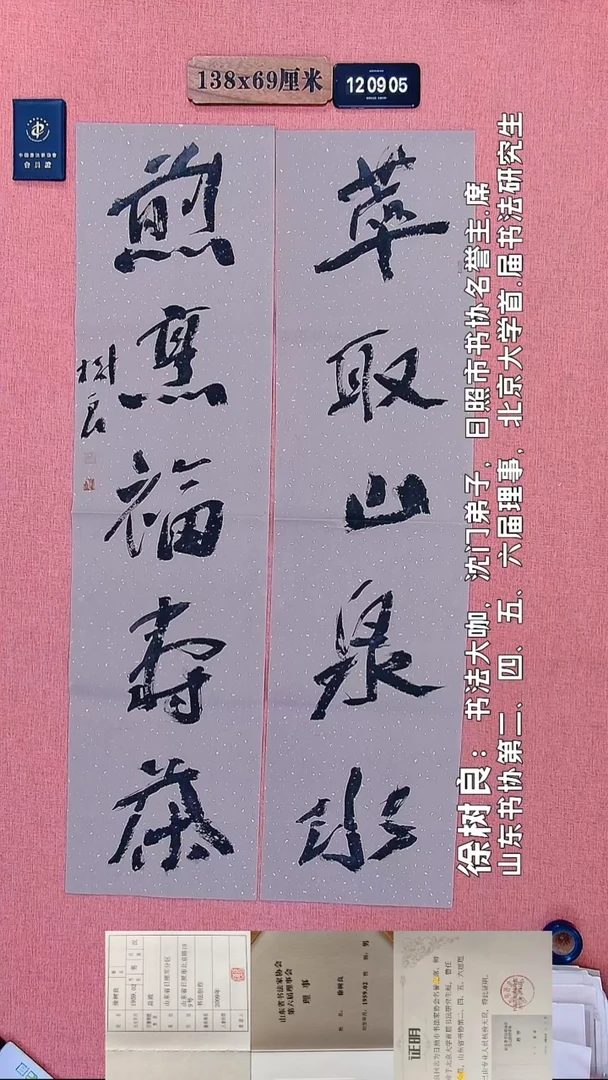 138x69厘米
12 09 05
會員證
萃取山泉水
煎烹福寿茶
树良
徐树良：书法大咖，沈门弟子，日照市书协名誉主.席
山东书协第二、四、五、六届理事，北京大学首.届书法研究生
山东省书法家协会
第六届理事会
理事
徐树良
男
1959.02
证明